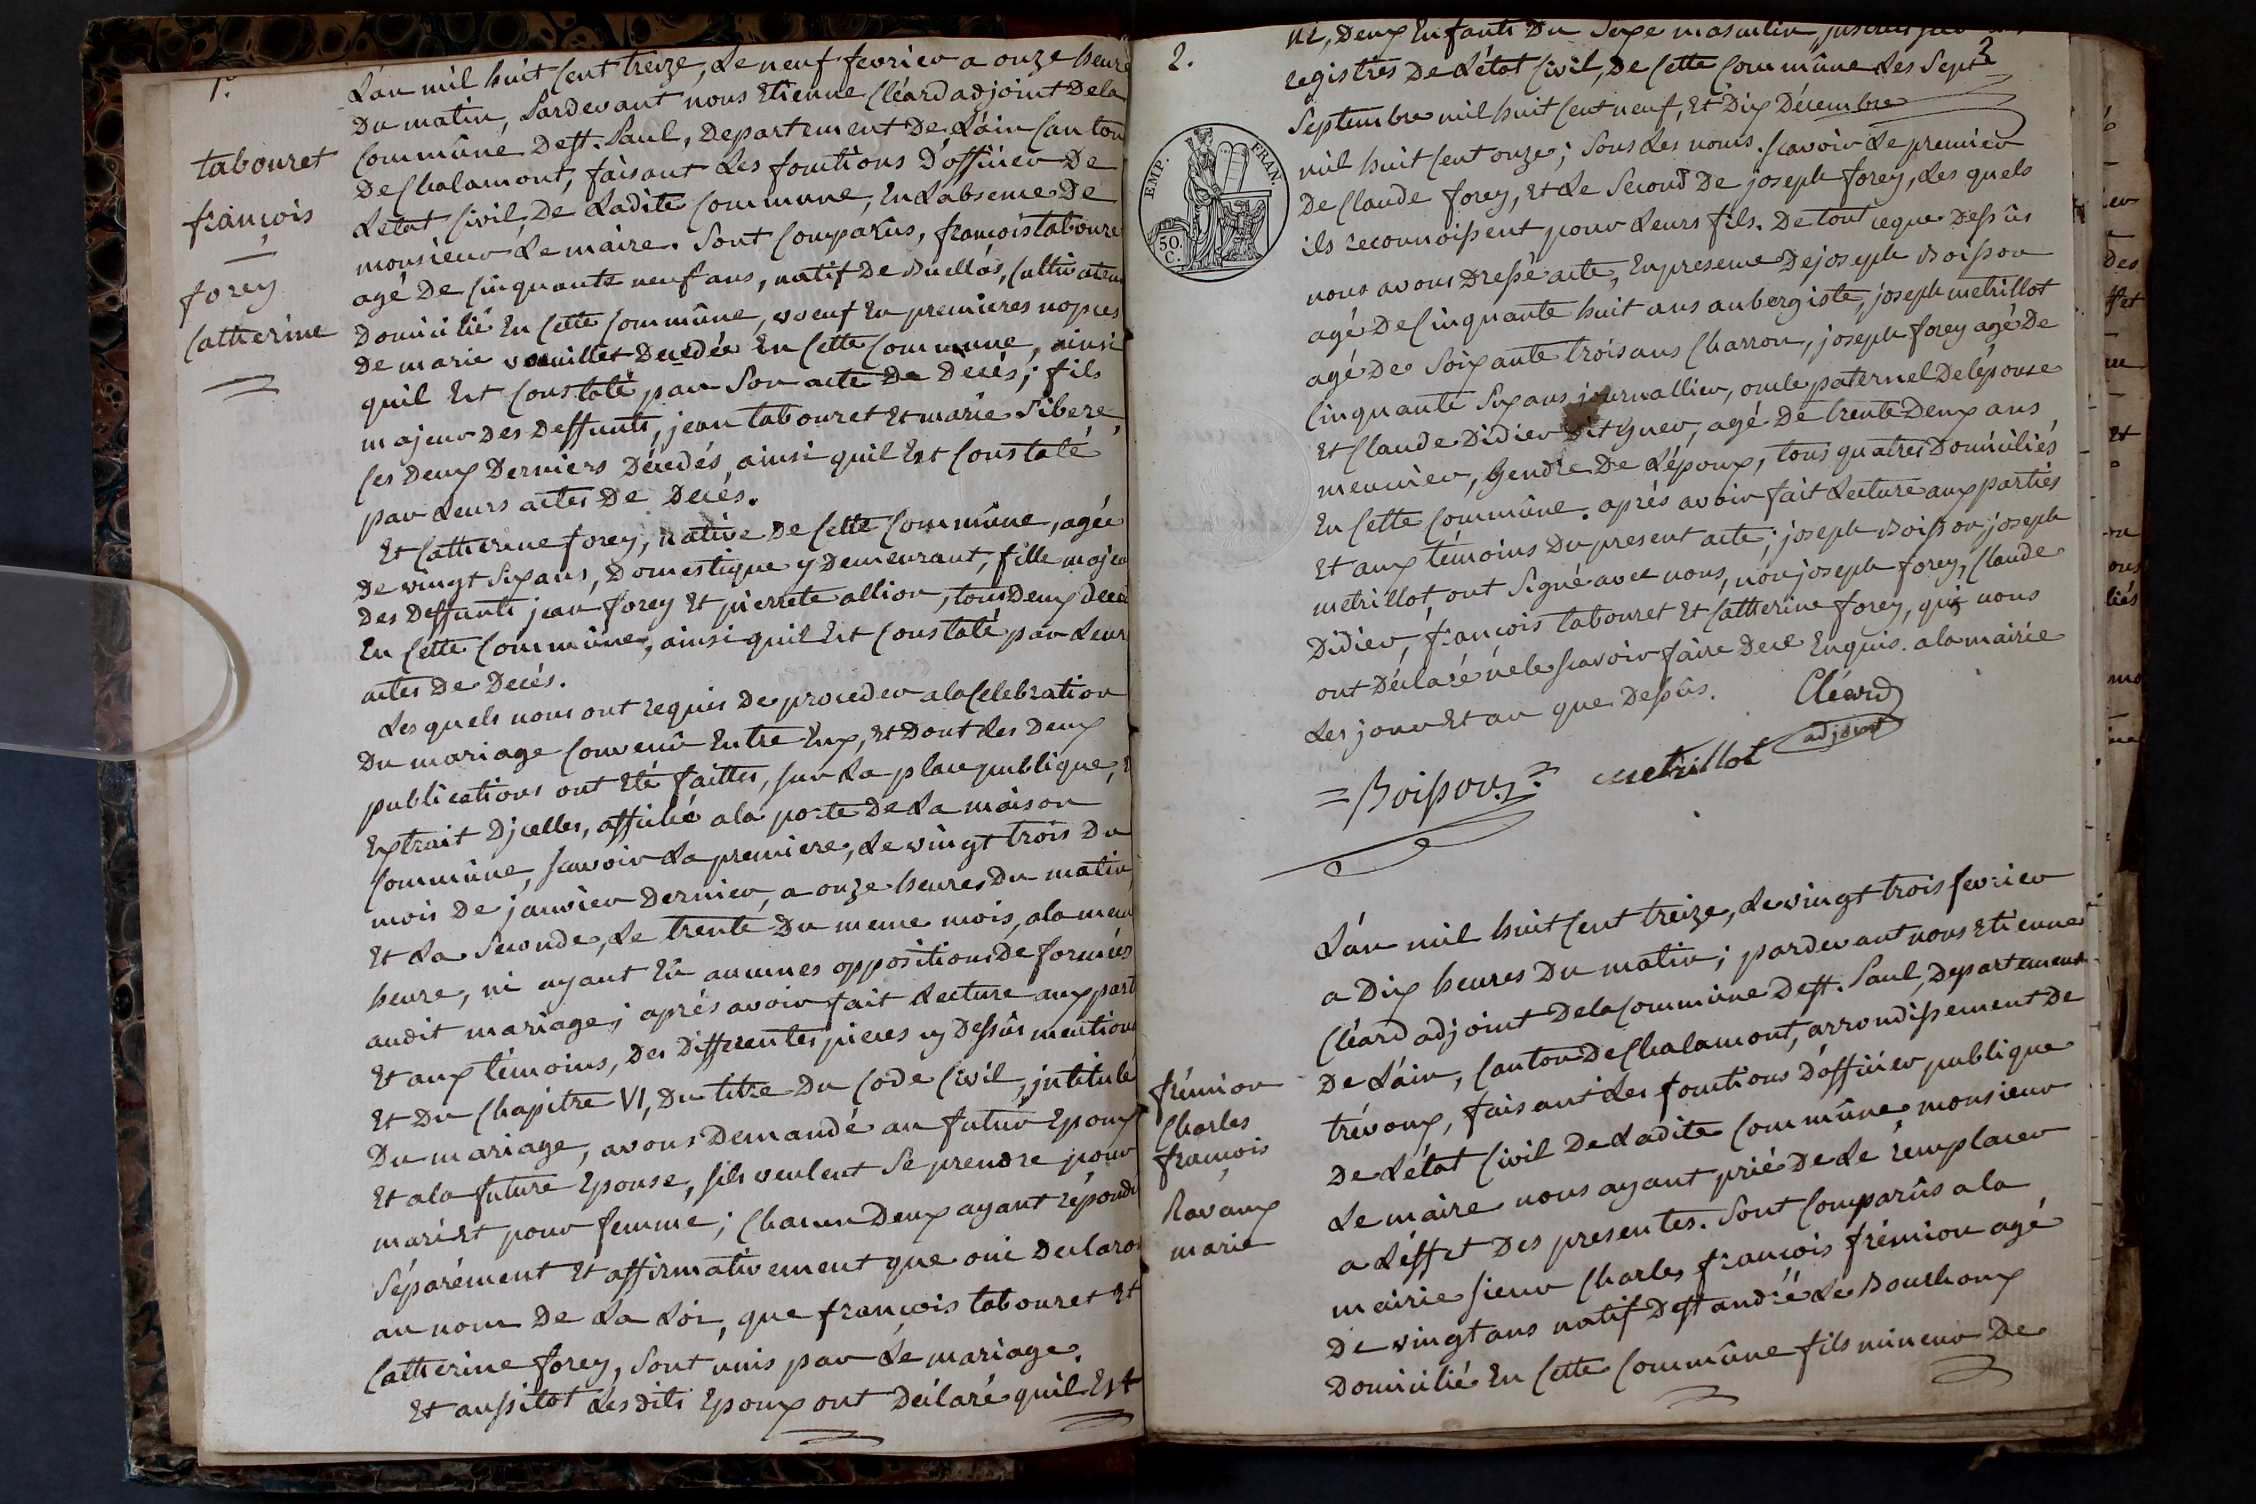 1.
tabouret
françois
forey
Catherine
L'an mil huit Cent treize, Le neuf fevrier a onze heure
Du matin, Pardevant nous Etienne Cléard adjoint Dela
Commûne Dest. Paul, Departement De L'ain Canton
De Chalamont, faisant Les fonctions D'officier De
L'etat Civil, De Ladite Commune, En L'absence De
monsieur Le maire. Sont Comparûs, françois taboure
agé De Cinquante neuf ans, natif De Buellas, Cultivateur
Domicilié En Cette Commûne, voeuf En premieres nopces
De marie vouillet Decedée En Cette Commune, ainsi
quil Est Constaté par Son acte De Decés; fils
majeur Des Deffunts, jean tabouret Et marie Sibere,
Ces Deux Derniers Décedés, ainsi quil Est Constaté,
par Leurs actes De Decés.
Et Catherine forey, native De Cette Commûne, agée
De vingt Six ans, Domestique y Demeurant, fille majeu
Des Deffunts jean forey Et pierrete allion, tous Deux Decé
En Cette Commûne, ainsi quil Est Constaté par Leur
actes De Decés.
Les quels nous ont requis De proceder ala Celebration
Du mariage Convenû Entre Eux, Et Dont Les Deux
publications ont Eté faittes, Sur La place publique, E
Extrait D'jcelles, affiché ala porte De La maison
Commûne, Scavoir La premiere, Le vingt trois Du
mois De janvier Dernier, a onze heures Du matin,
Et La Seconde, Le trente Du meme mois, ala mem
heure, ni ayant Eû aucunes oppositions De formées
audit mariage; aprés avoir fait Lecture aux part
Et aux témoins, Des Differentes pieces cy Dessûs mention
Et Du Chapitre VI, Du titre Du Code Civil, jntitulé
Du mariage, avons Demandé au futur Epoux
Et ala future Epouse, Sils veulent Se prendre pour
mari Et pour femme; Chacun Deux ayant répondu
Séparément Et affirmativement que oui Declaron
au nom De La Loi, que françois tabouret Et
Catherine forey, Sont unis par Le mariage.
Et aussitot Lesdits Epoux ont Déclaré quil Est
2.
2
né, Deux Enfants Du Sexe masculin,
registres De L'état Civil, De Cette Commûne Les Sept
Septembre mil huit Cent neuf, Et Dix Décembre
mil huit Cent onze; Sous Les noms. Scavoir Le premier
De Claude forey, Et Le Second De joseph forey, Les quels
ils reconnoissent pour Leurs fils. De tout ceque Dessûs
nous avons Dressé acte, En presence De joseph Boisson
agé De Cinquante huit ans aubergiste, joseph metrillot
agé De Soixante trois ans Charron, joseph forey agé De
Cinquante Six ans journallier, oncle paternel De L'épouse
Et Claude Didier Dit Guer, agé De trente Deux ans
meunier, Gendre De L'époux, tous quatres Domiciliés
En Cette Commûne. aprés avoir fait Lecture aux parties
Et aux témoins Du present acte; joseph Boisson, joseph
metrillot, ont Signé avec nous, non joseph forey, Claude
Didier, françois tabouret Et Catherine forey, qui nous
ont Déclaré ne le scavoir faire De ce Enquis. ala mairie
Les jour Et an que Dessûs.
Cléard
adjoint
Boisson
metrillot
EMP. FRAN.
50.
C.
frémion
Charles
françois
Ravaux
marie
L'an mil huit Cent treize, Le vingt trois fevrier
a Dix heures Du matin; pardevant nous Etienne
Cléard adjoint Dela Commûne Dest. Paul, Departement
De L'ain, Canton De Chalamont, arrondissement De
trévoux, faisant Les fonctions D'officier publique
De L'état Civil De Ladite Commûne, monsieur
Le maire nous ayant prié De Le remplacer
a L'éffet Des presentes. Sont Comparûs ala
mairie sieur Charles françois frémion agé
De vingt ans natif Dest andré Le Bouchoux
Domicilié En Cette Commûne fils mineur De